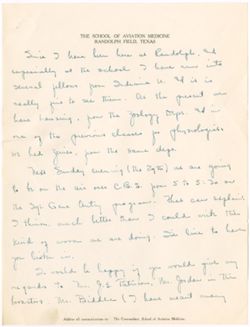 THE SCHOOL OF AVIATION MEDICINE
RANDOLPH FIELD, TEXAS
Since I have been here at Randolph, and
especially at the school, I have run into
several fellows from Indiana U. It is
really fun to see them. At the present are
here, from the Zoology Dept. and is
one of the previous classes for physiologists
we had, from the same dept.
Next Sunday evening (the 29th) we are going
to be on the air over C.B.S. from 5 to 5:30 on
the Gene Autry program. They can explain
I think, much better than I could with the
kind of work we are doing. I'd love to have
you listen in.
I would be happy if you would give my
regards to Mr. Patrick, Mr. Jordan in the
Mr. Biddle (I have meant many
Address all communications to: The Commandant, School of Aviation Medicine.